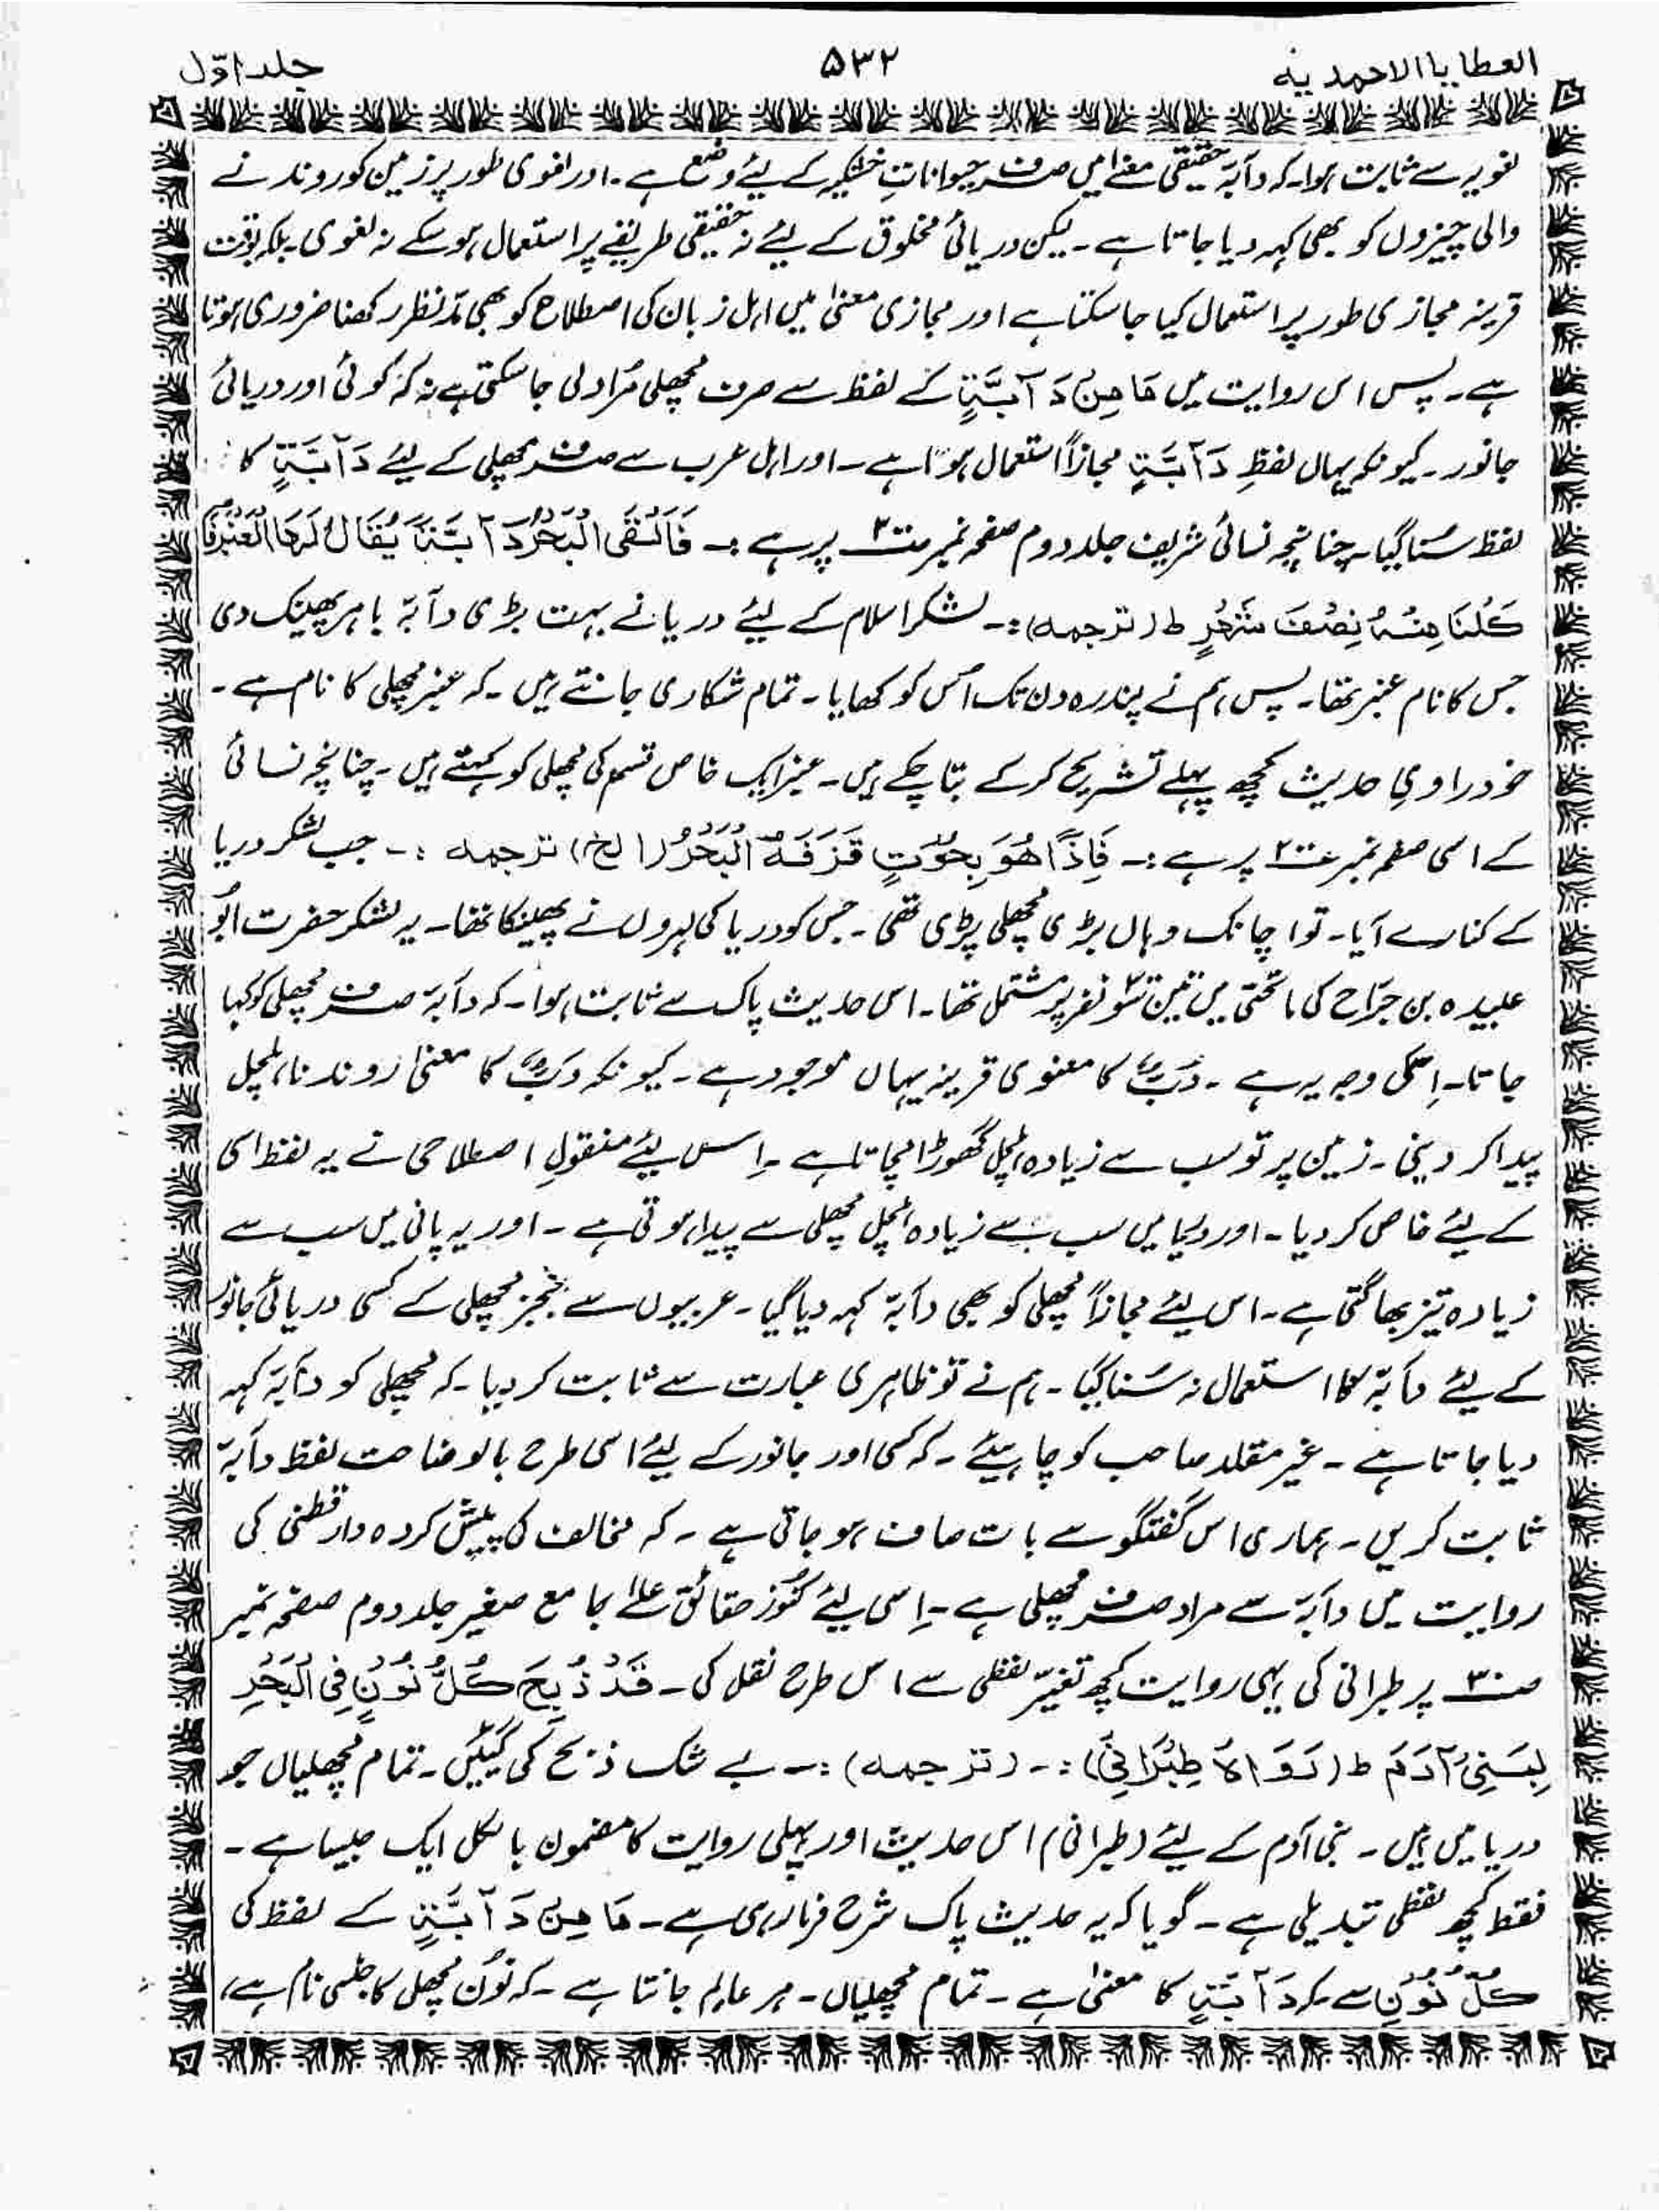 العطایا الاحمدیہ ۵۳۲ جلد اوّل
لغویہ سے ثابت ہوا۔ کہ دآبہ حقیقی معنےٰ میں صرف حیواناتِ خشکیہ کے لیئے وضع ہے۔ اور لغوی طور پر زمین کو روندنے
والی چیزوں کو بھی کہہ دیا جاتا ہے۔ لیکن دریائی مخلوق کے لیئے نہ حقیقی طریقے پر استعمال ہو سکے نہ لغوی۔ بلکہ بوقت
قرینہ مجازی طور پر استعمال کیا جا سکتا ہے اور مجازی معنیٰ میں اہل زبان کی اصطلاح کو بھی مدّنظر رکھنا ضروری ہوتا
ہے۔ پس اس روایت میں مَا مِنْ دَآبَّۃٍ کے لفظ سے صرف مچھلی مُراد لی جا سکتی ہے نہ کہ کوئی اور دریائی
جانور۔ کیونکہ یہاں لفظِ دَآبَّۃٍ مجازاً استعمال ہوا ہے۔ اور اہل عرب سے صرف مچھلی کے لیئے دَآبَّۃٍ کا
لفظ سُنا گیا۔ چنانچہ نسائی شریف جلد دوم صفحہ نمبر پر ہے :۔ فَاَلْقَی الْبَحْرُ دَآبَّۃً یُقَالُ لَہَا الْعَنْبَرُ فَا
کَلْنَا مِنْہُ نِصْفَ شَہْرٍ ط (ترجمہ) :۔ لشکر اسلام کے لیئے دریا نے بہت بڑی دآبّہ باہر پھینک دی
جس کا نام عنبر تھا۔ پس ہم نے پندرہ دن تک اُس کو کھایا۔ تمام شکاری جانتے ہیں۔ کہ عنبر مچھلی کا نام ہے۔
خود راویِ حدیث کچھ پہلے تشریح کر کے بتا چکے ہیں۔ عنبر ایک خاص قسم کی مچھلی کو کہتے ہیں۔ چنانچہ نسائی
کے اسی صفحہ نمبر پر ہے :۔ فَاِذًا ہُوَ بِحُوْتٍ قَذَفَہُ الْبَحْرُ (الخ) ترجمہ :۔ جب لشکر دریا
کے کنارے آیا۔ تو اچانک وہاں بڑی مچھلی پڑی تھی۔ جس کو دریا کی لہروں نے پھینکا تھا۔ یہ لشکر حضرت ابُو
عبیدہ بن جرّاح کی ماتحتی میں تین سَو نفر پر مشتمل تھا۔ اس حدیث پاک سے ثابت ہوا۔ کہ دآبہّ صرف مچھلی کو کہا
جاتا۔ اِسکی وجہ یہ ہے۔ دَبٌّ کا معنوی قرینہ یہاں موجود ہے۔ کیونکہ دَبٌّ کا معنیٰ روندنا، ہلچل
پیدا کر دینی۔ زمین پر تو سب سے زیادہ ہلچل گھوڑا مچاتا ہے۔ اِس لیئے منقولِ اصطلاحی نے یہ لفظ اسی
کے لیئے خاص کر دیا۔ اور دریا میں سب سے زیادہ ہلچل مچھلی سے پیدا ہوتی ہے۔ اور یہ پانی میں سب سے
زیادہ تیز بھاگتی ہے۔ اس لیئے مجازاً مچھلی کو بھی دآبہّ کہہ دیا گیا۔ عربیوں سے بجز مچھلی کے کسی دریائی جانور
کے لیئے دآبہّ کا استعمال نہ سُنا گیا۔ ہم نے تو ظاہری عبارت سے ثابت کر دیا۔ کہ مچھلی کو دآبہّ کہہ
دیا جاتا ہے۔ غیر مقلد صاحب کو چاہیئے۔ کہ کسی اور جانور کے لیئے اسی طرح بالوضاحت لفظ دآبہّ
ثابت کریں۔ ہماری اس گفتگو سے بات صاف ہو جاتی ہے۔ کہ مخالف کی پیش کردہ دار قطنی کی
روایت میں دآبہّ سے مراد صرف مچھلی ہے۔ اِسی لیئے کنُوز حقائق علےٰ جامع صغیر جلد دوم صفحہ نمبر
پر طبرانی کی یہی روایت کچھ تغیّر لفظی سے اس طرح نقل کی۔ قَدْ ذُبِحَ کُلُّ نُوْنٍ فِی الْبَحْرِ
لِبَنِیْ آدَمَ ط (رَوَاہُ طِبْرَانِیْ) :۔ (ترجمہ) :۔ بے شک ذبح کی گئیں۔ تمام مچھلیاں جو
دریا میں ہیں۔ بنی آدم کے لیئے (طبرانی) اس حدیث اور پہلی روایت کا مضمون بالکل ایک جیسا ہے۔
فقط کچھ لفظی تبدیلی ہے۔ گویا کہ یہ حدیث پاک شرح فرما رہی ہے۔ مَا مِنْ دَآبَّۃٍ کے لفظ کی
کُلُّ نُوْنٍ سے کہ دَآبَّۃٍ کا معنیٰ ہے۔ تمام مچھلیاں۔ ہر عالِم جانتا ہے۔ کہ نُوْن مچھلی کا جنسی نام ہے،